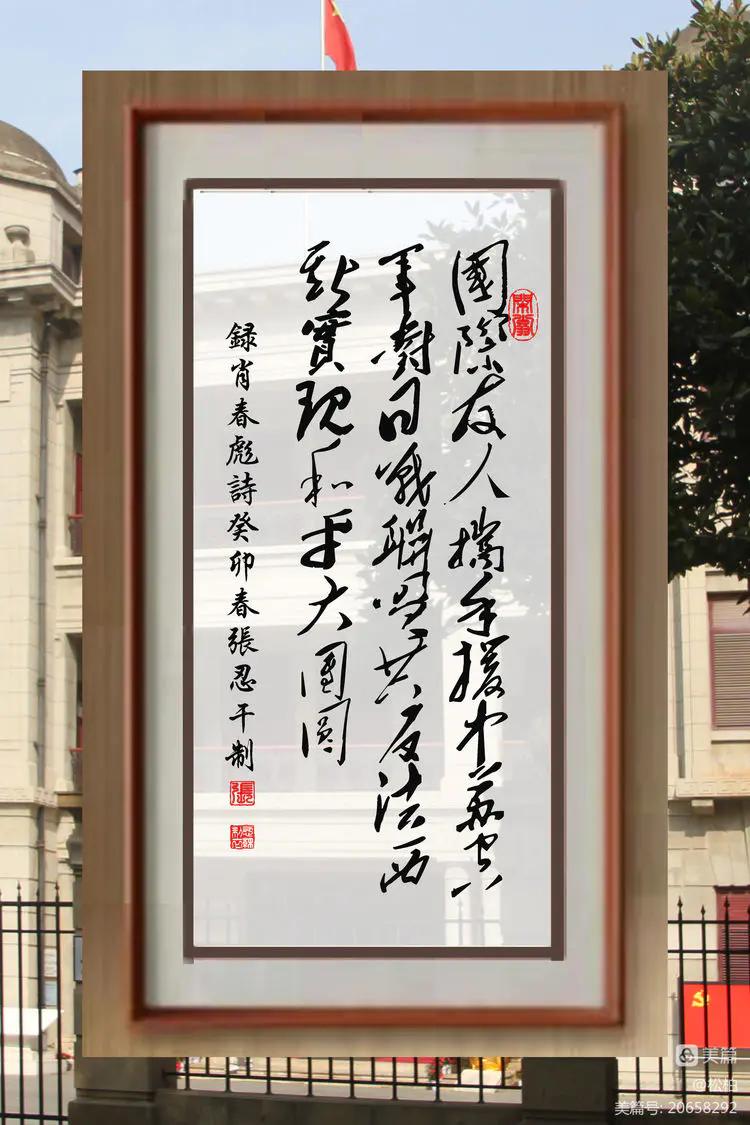 國際友人攜手援中蘇空
軍對日戰聯盟共反法西
斯實現和平大團圓
録肖春彪詩癸卯春張忍干制
張
美篇
@松柏
美篇号: 20658292